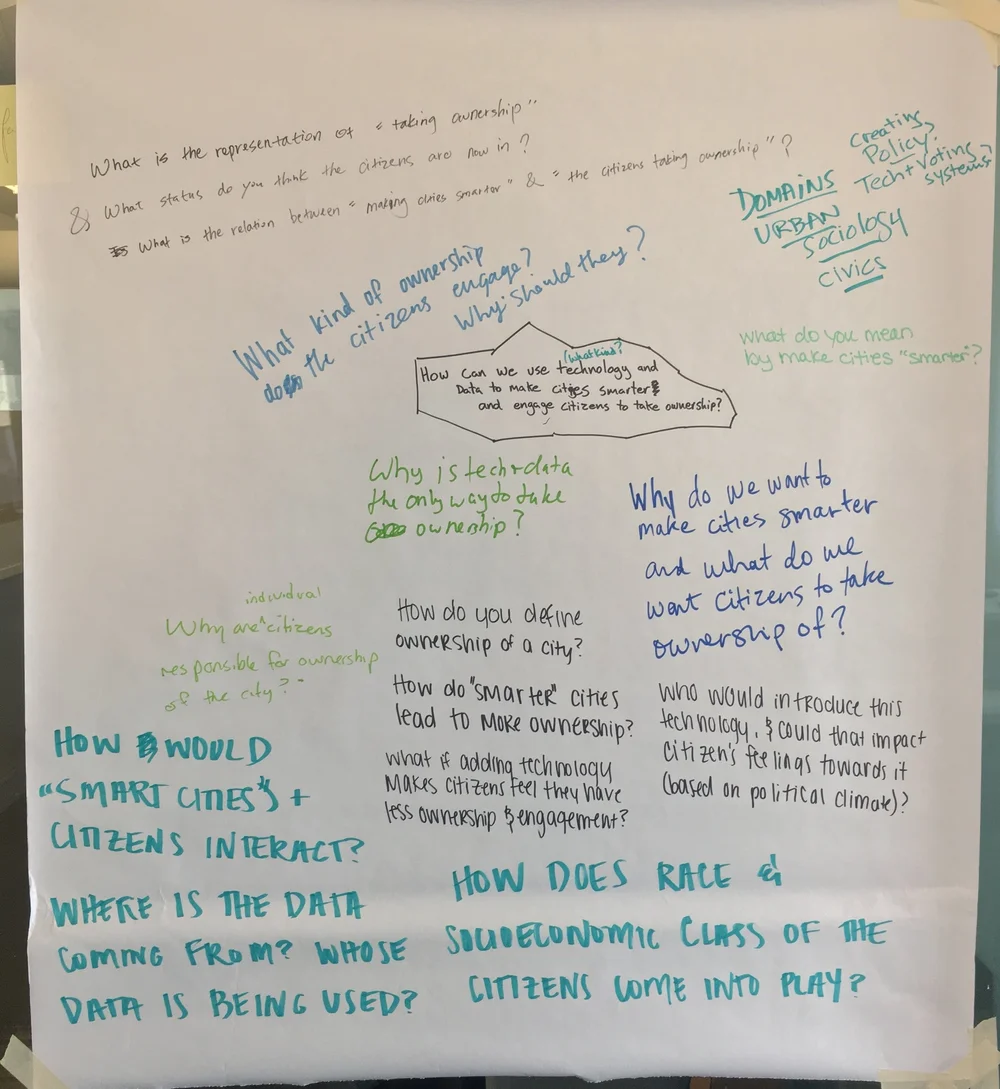 What is the representation of "taking ownership"
& What status do you think the citizens are now in?
What is the relation between "making cities smarter" & "the citizens taking ownership"?
Creating
Policy?
Tech + Voting
systems?
DOMAINS
URBAN
Sociology
Civics
What kind of ownership
does the citizens engage?
Why should they?
what do you mean
by make cities "smarter"?
(what kind?
How can we use technology and
Data to make cities smarter
and engage citizens to take ownership?
Why is tech + data
the only way to take
ownership?
Why do we want to
make cities smarter
and what do we
want citizens to take
ownership of?
individual
Why are ^ citizens
responsible for ownership
of the city?"
How do you define
ownership of a city?
How do "smarter" cities
lead to more ownership?
what if adding technology
makes citizens feel they have
less ownership & engagement?
who would introduce this
technology, & could that impact
citizen's feelings towards it
(based on political climate)?
HOW WOULD
"SMART CITIES" +
CITIZENS INTERACT?
WHERE IS THE DATA
COMING FROM? WHOSE
DATA IS BEING USED?
HOW DOES RACE &
SOCIOECONOMIC CLASS OF THE
CITIZENS COME INTO PLAY?